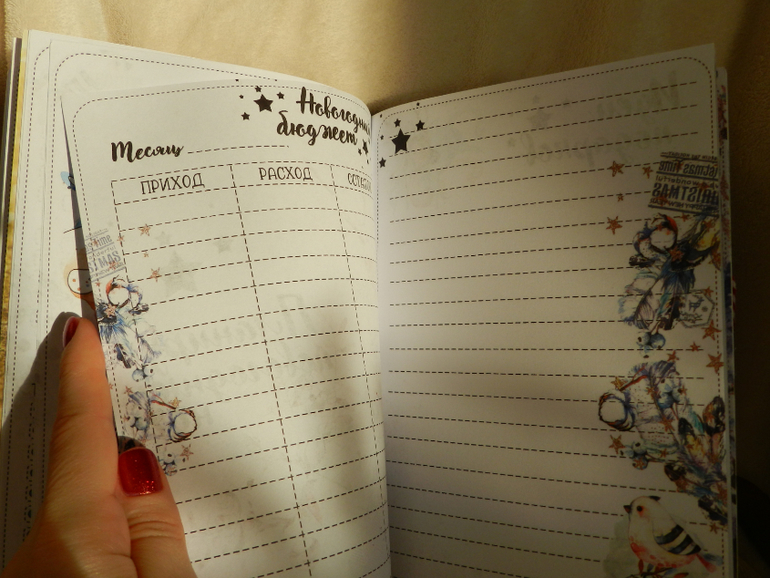 Новогодний
бюджет
Месяц
ПРИХОД РАСХОД